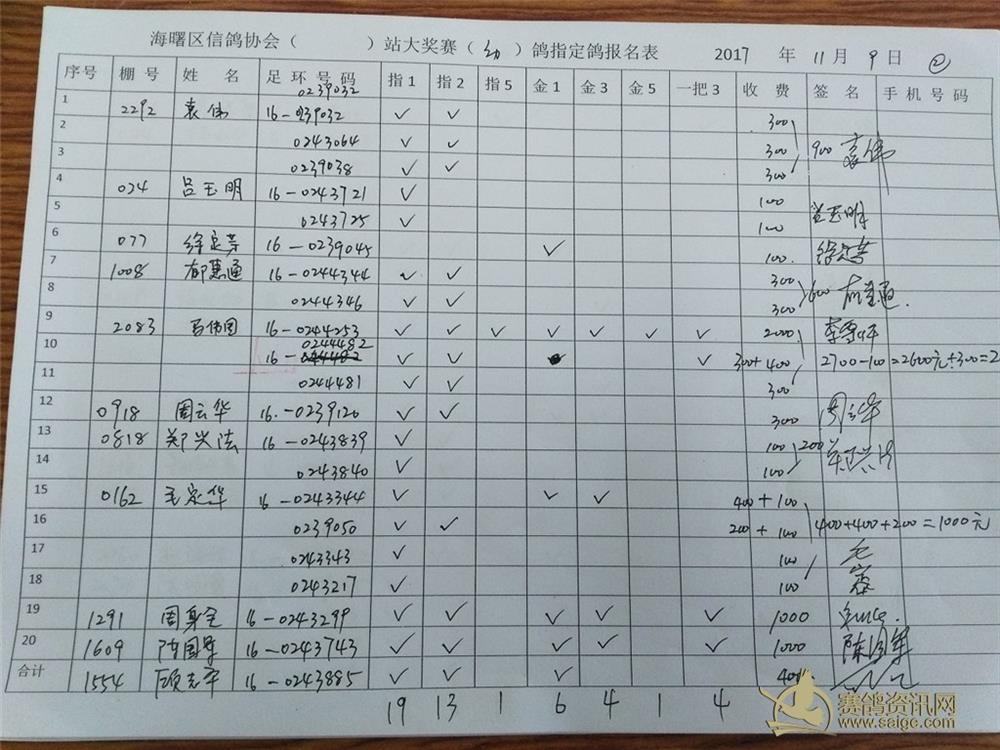 海曙区信鸽协会（ ）站大奖赛（幼）鸽指定鸽报名表 2017 年 11 月 9 日 ②
序号 棚号 姓 名 足环号码 指1 指2 指5 金1 金3 金5 一把3 收 费 签 名 手机号码
0239032
1 2292 袁伟 16-0239032 ✓ ✓ 300
2 0243064 ✓ ✓ 300 900 袁伟
3 0239038 ✓ ✓ 300
4 024 吕玉明 16-0243721 ✓ 100
5 0243725 ✓ 100 吕玉明
6 077 徐定芳 16-0239045 ✓ 100 徐定芳
7 1008 郁惠通 16-0244344 ✓ ✓ 300
8 0244346 ✓ ✓ 300 600 郁惠通.
9 2083 16-0244253 ✓ ✓ ✓ ✓ ✓ ✓ ✓ 2000
0244482
10 16- ✓ ✓ ✓ 300+400 2700-100=2600元+300=2
11 0244481 ✓ ✓ 300
12 0918 周云华 16-0239120 ✓ ✓ 300 周云华
13 0818 郑兴法 16-0243839 ✓ 100 200 郑兴法
14 0243840 ✓ 100
15 0162 毛定华 16-0243344 ✓ ✓ ✓ 400+100
16 0239050 ✓ ✓ 200+100 400+400+200=1000元
17 0243343 ✓ 100
18 0243217 ✓ 100
19 1291 周身全 16-0243299 ✓ ✓ ✓ ✓ ✓ 1000
20 1609 陈国军 16-0243743 ✓ ✓ ✓ ✓ ✓ 1000 陈国军
合计 1554 顾志平 16-0243885 ✓ ✓ ✓ 400
19 13 1 6 4 1 4
赛鸽资讯网
www.saige.com